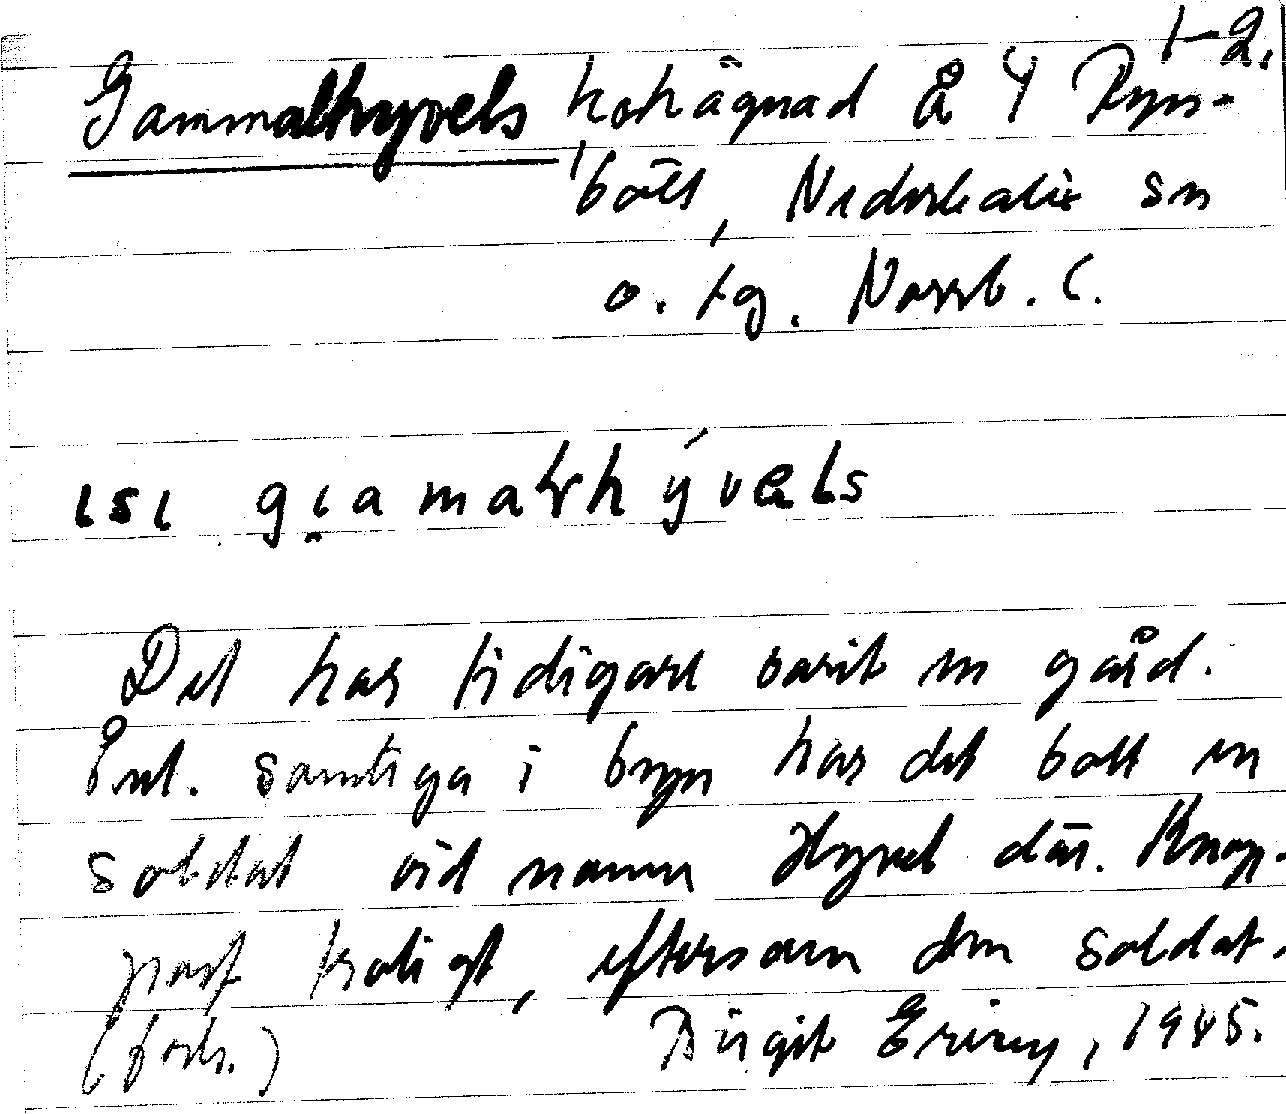 1-2.
Gammalhyvels kohägnad å 4 Ryss-
bält, Nederkalix sn
o. tg. Norrb. l.
ısı gıamalrhývels
Det har tidigare varit en gård.
Enl. samtiga i byn har det bott en
soldat vid namn Hyvel där. Knap-
past troligt, eftersom den soldat-
(forts.) Birgit Ericy, 1945.